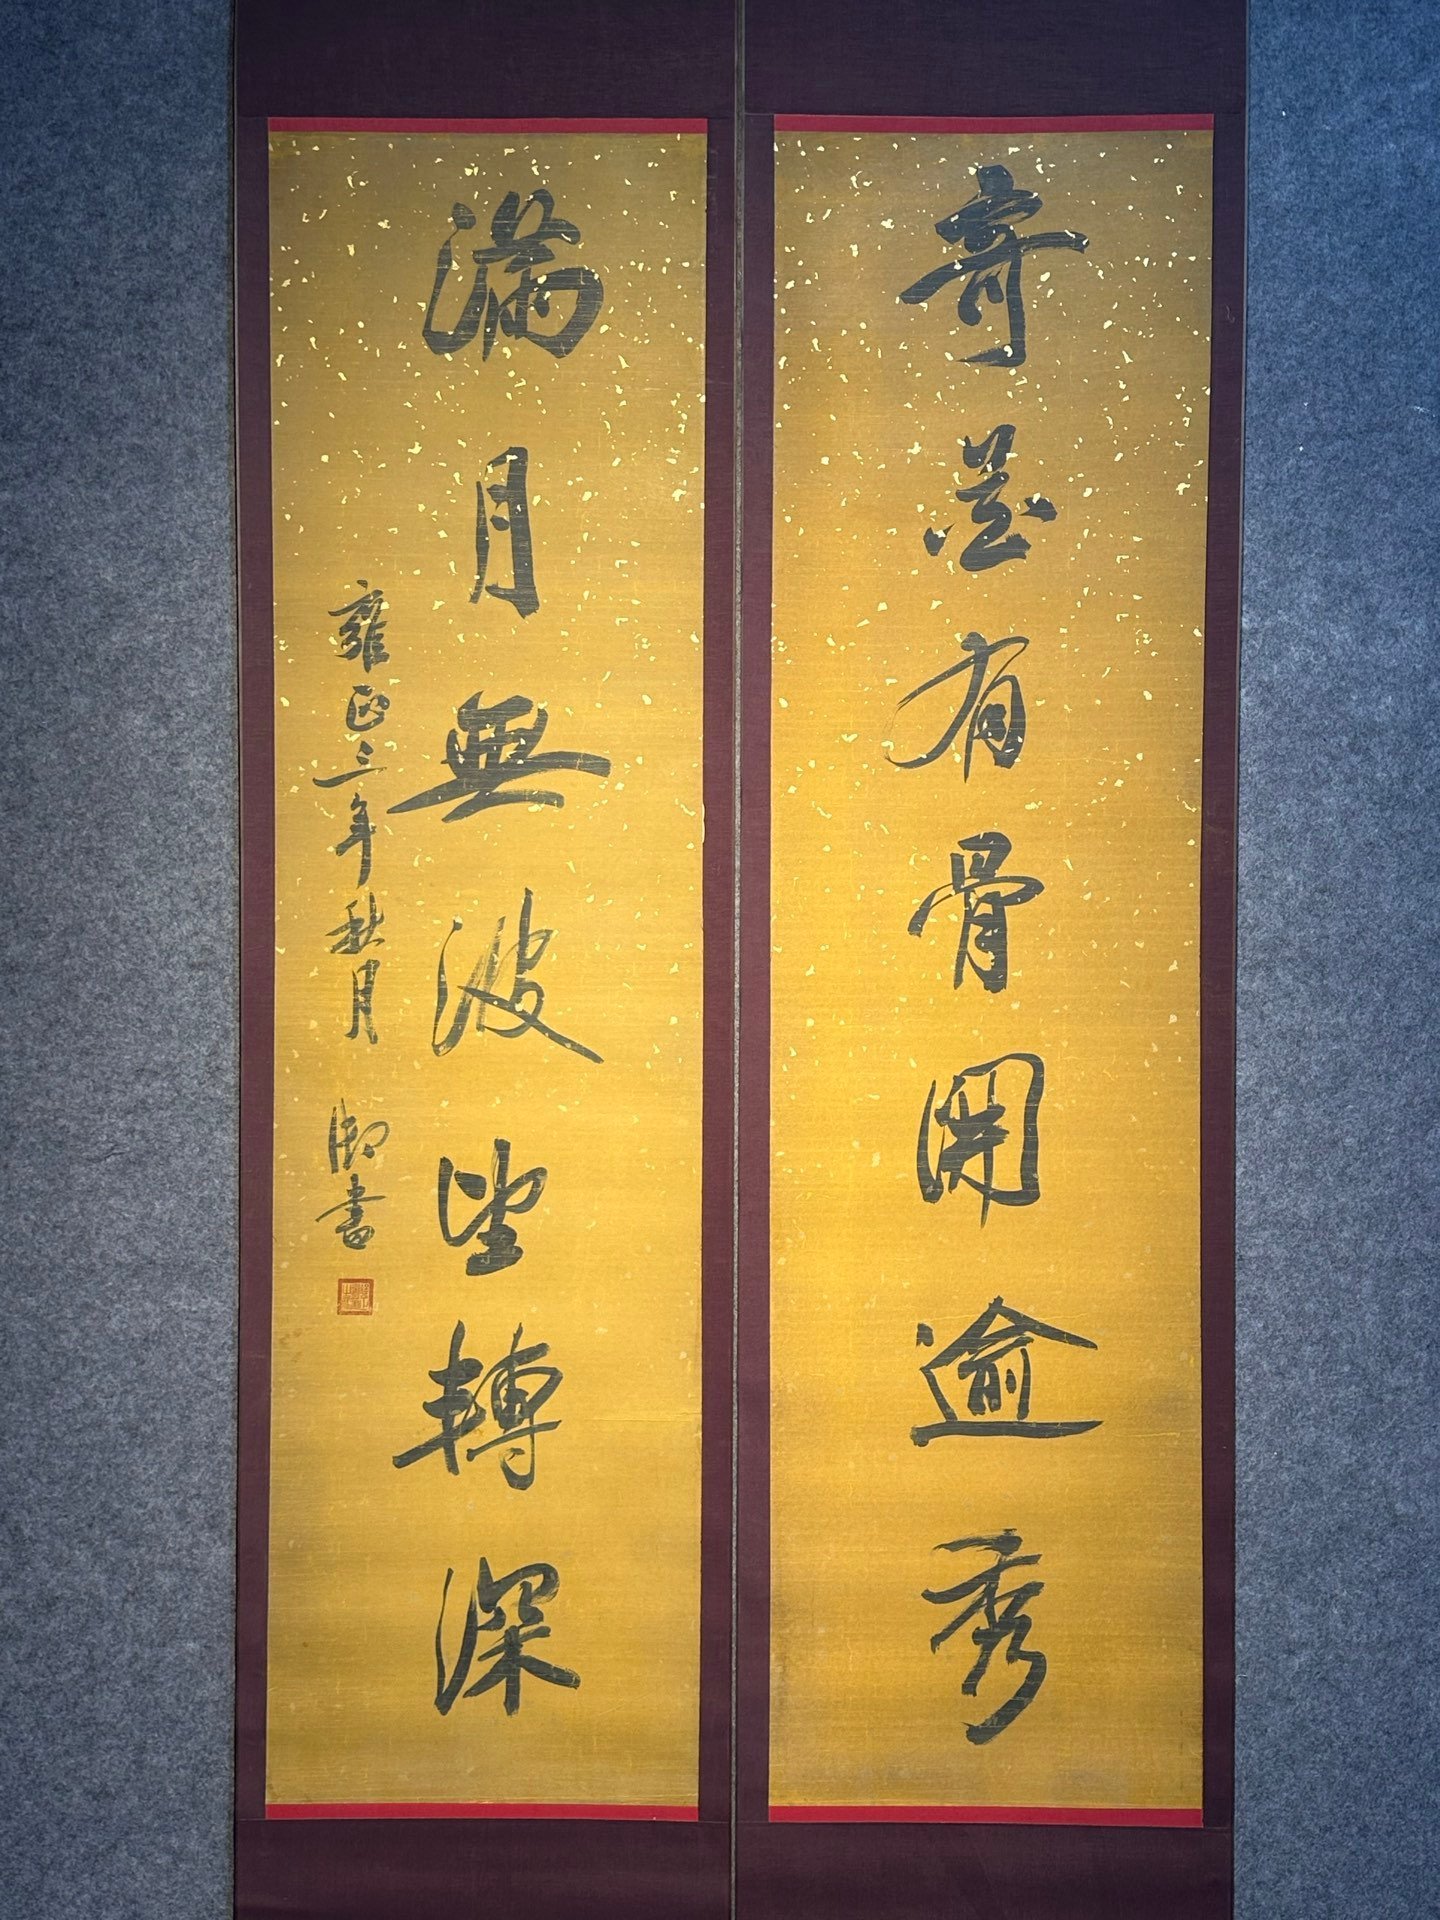 奇花有骨開逾秀
滿月無波望轉深
雍正三年秋月 御書